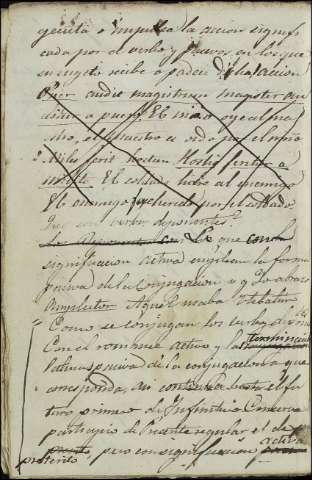 gencita o impulsa la accion signifi
cada por el verbo y pasivos en los que
su sugeto recibe o padece dicha accion
Puer audit magistrum magister au
ditur a puero El niño oye al ma
estro, el maestro es oido por el niño
2. Miles ferit hostem Hostis feritur a
milite El soldado hirio al enemigo
El enemigo es herido por el soldado
Que son verbos deponentes
Los que con la
significacion activa emplean la forma
pasiva de la conjugacion v g Yo abrazo
Amplector Aquel usaba
Como se conjugan los verbos depon
Con el romance activo y la terminacion
latina pasiva de la conjugacion a que
corresponda, asi
turo primero de Infinitivo Conserva
participio de Presente regular el de
preterito, pero con significacion activa